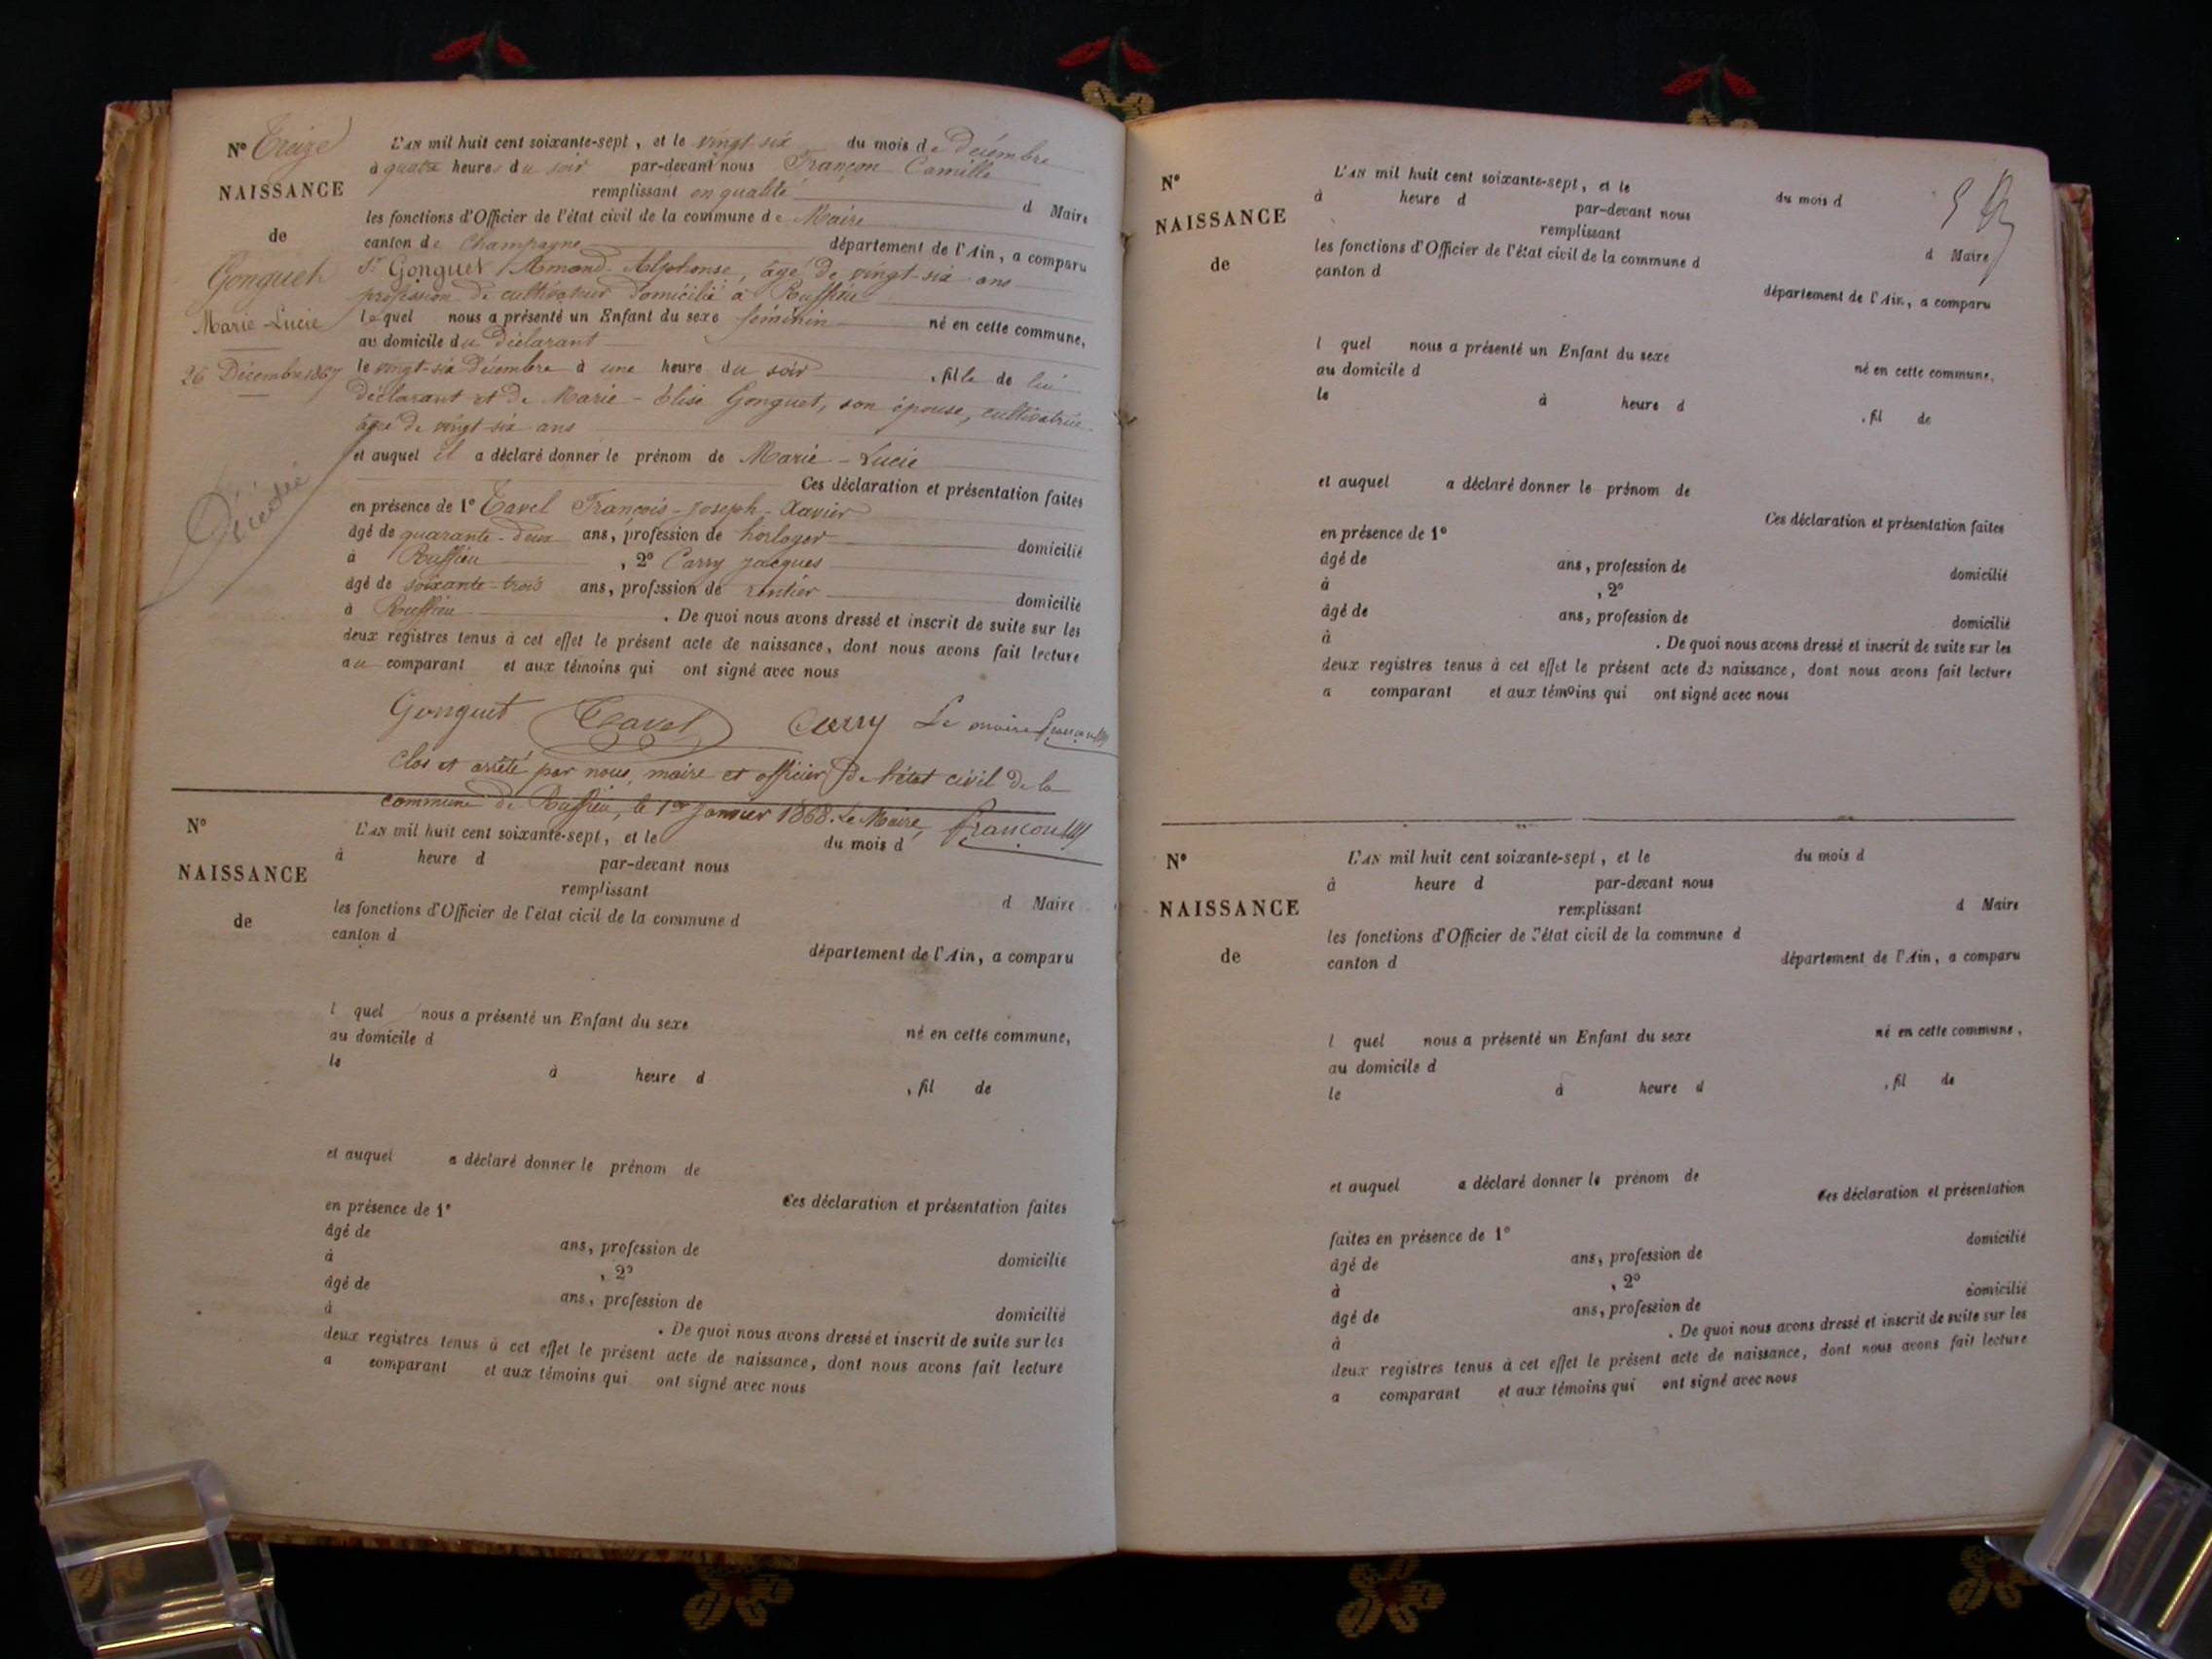 N° Treize
NAISSANCE
de
Gonguet
Marie-Lucie
26 Décembre 1867
Décédée
L'AN mil huit cent soixante-sept, et le vingt six du mois de Décembre
à quatre heures du soir par-devant nous Françon Camille
remplissant en qualité d Maire
les fonctions d'Officier de l'état civil de la commune de Maire
canton de Champagne département de l'Ain, a comparu
Sr Gonguet Amand-Alphonse, âgé de vingt-six ans
profession de cultivateur domicilié à Ruffieu
lequel nous a présenté un Enfant du sexe féminin né en cette commune,
au domicile du déclarant
le vingt-six Décembre à une heure du soir, fille de lui
déclarant et de Marie-Elise Gonguet, son épouse, cultivatrice
âgée de vingt-six ans
et auquel il a déclaré donner le prénom de Marie-Lucie
Ces déclaration et présentation faites
en présence de 1° Tavel François-Joseph-Xavier
âgé de quarante-deux ans, profession de horloger domicilié
à Ruffieu, 2° Carry Jacques
âgé de soixante-trois ans, profession de rentier domicilié
à Ruffieu. De quoi nous avons dressé et inscrit de suite sur les
deux registres tenus à cet effet le présent acte de naissance, dont nous avons fait lecture
au comparant et aux témoins qui ont signé avec nous
Gonguet Tavel Carry Le maire Françon
Clos et arrêté par nous, maire et officier de l'état civil de la
commune de Ruffieu, le 1er Janvier 1868. Le Maire, Françon
N°
NAISSANCE
de
L'AN mil huit cent soixante-sept, et le du mois d
à heure d par-devant nous
remplissant d Maire
les fonctions d'Officier de l'état civil de la commune d
canton d département de l'Ain, a comparu
l quel nous a présenté un Enfant du sexe né en cette commune,
au domicile d
le à heure d , fil de
et auquel a déclaré donner le prénom de
Ces déclaration et présentation faites
en présence de 1°
âgé de ans, profession de domicilié
à , 2°
âgé de ans, profession de domicilié
à . De quoi nous avons dressé et inscrit de suite sur les
deux registres tenus à cet effet le présent acte de naissance, dont nous avons fait lecture
a comparant et aux témoins qui ont signé avec nous
N°
NAISSANCE
de
L'AN mil huit cent soixante-sept, et le du mois d
à heure d par-devant nous
remplissant d Maire
les fonctions d'Officier de l'état civil de la commune d
canton d département de l'Ain, a comparu
l quel nous a présenté un Enfant du sexe né en cette commune,
au domicile d
le à heure d , fil de
et auquel a déclaré donner le prénom de
Ces déclaration et présentation faites
en présence de 1°
âgé de ans, profession de domicilié
à , 2°
âgé de ans, profession de domicilié
à . De quoi nous avons dressé et inscrit de suite sur les
deux registres tenus à cet effet le présent acte de naissance, dont nous avons fait lecture
a comparant et aux témoins qui ont signé avec nous
N°
NAISSANCE
de
L'AN mil huit cent soixante-sept, et le du mois d
à heure d par-devant nous
remplissant d Maire
les fonctions d'Officier de l'état civil de la commune d
canton d département de l'Ain, a comparu
l quel nous a présenté un Enfant du sexe né en cette commune,
au domicile d
le à heure d , fil de
et auquel a déclaré donner le prénom de
Ces déclaration et présentation
faites en présence de 1° domicilié
âgé de ans, profession de
à , 2° domicilié
âgé de ans, profession de
à . De quoi nous avons dressé et inscrit de suite sur les
deux registres tenus à cet effet le présent acte de naissance, dont nous avons fait lecture
a comparant et aux témoins qui ont signé avec nous